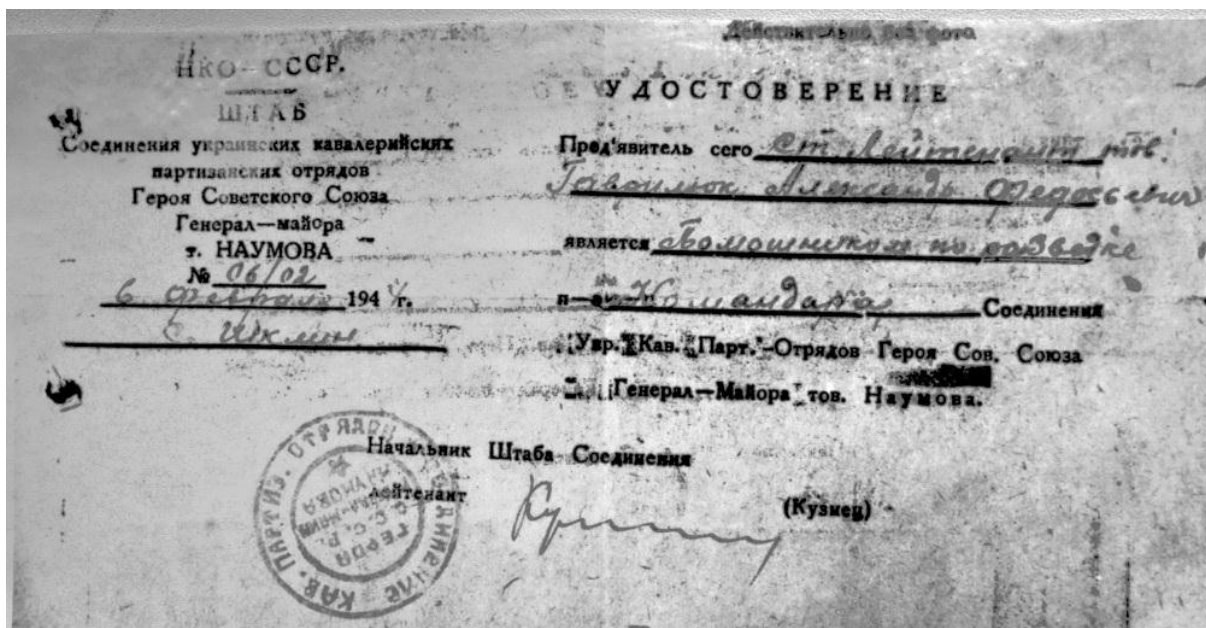 Действительно без фото
НКО—СССР.
ШТАБ
Соединения украинских кавалерийских
партизанских отрядов
Героя Советского Союза
Генерал—майора
т. НАУМОВА
№ 06/02
6 февраля 1944г.
УДОСТОВЕРЕНИЕ
Пред'явитель сего Ст. Лейтенант тов.
Гаврилюк Александр Федосеевич
является Помощником по разведке
Командира Соединения
Укр. Кав. Парт.-Отрядов Героя Сов. Союза
Генерал—Майора тов. Наумова.
Начальник Штаба Соединения
лейтенант (Кузнец)
КАВ. ПАРТИЗ. ОТРЯДОВ
ГЕРОЯ
НАУМОВА